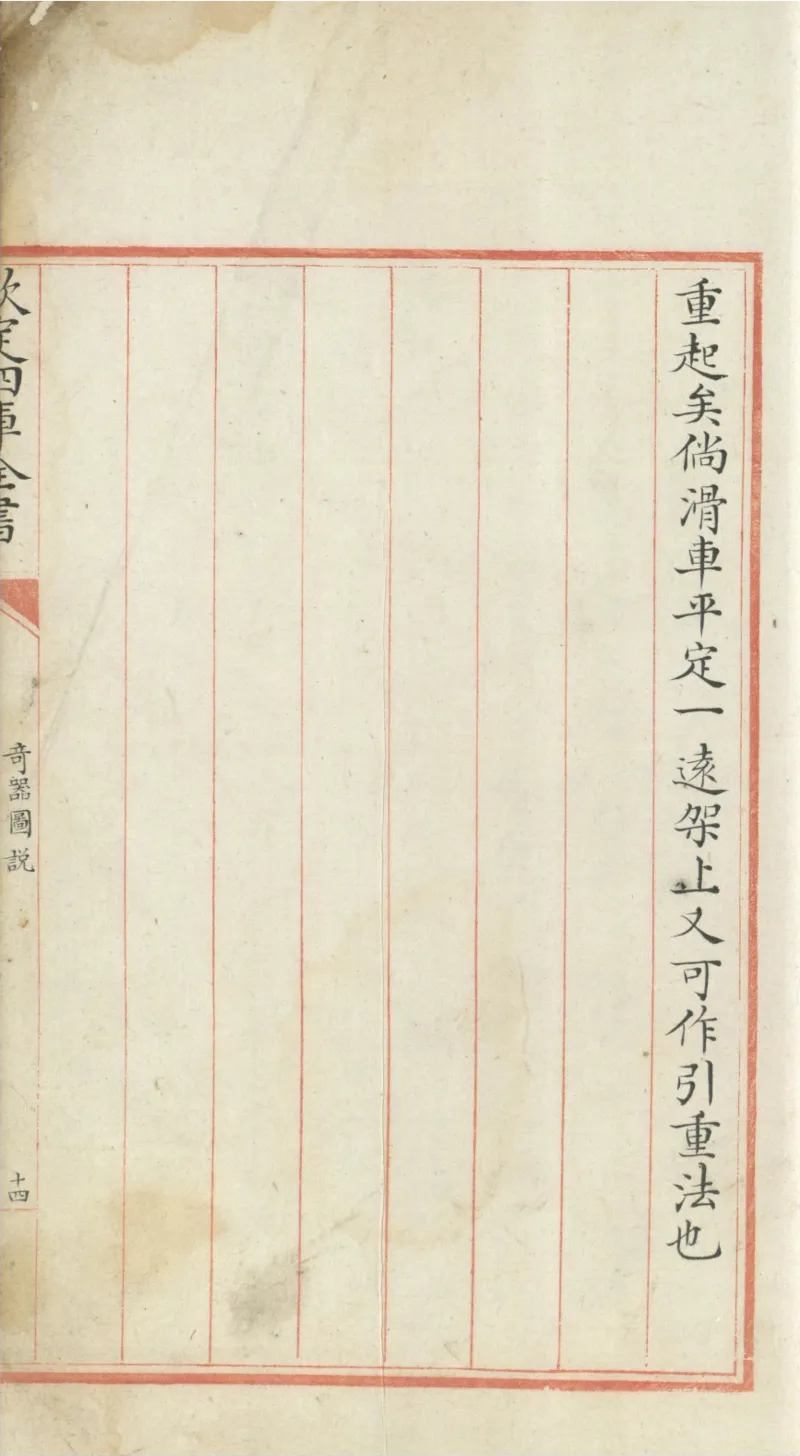 重起矣倘滑車平定一遠架上又可作引重法也
欽定四庫全書
奇器圖説
十四